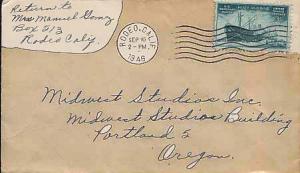 Return to
Mrs Manuel Gomez
Box 513
Rodeo Calif.
RODEO, CALIF.
SEP 16
2 - PM
1946
Midwest Studios Inc.
Midwest Studios Building
Portland 5
Oregon.